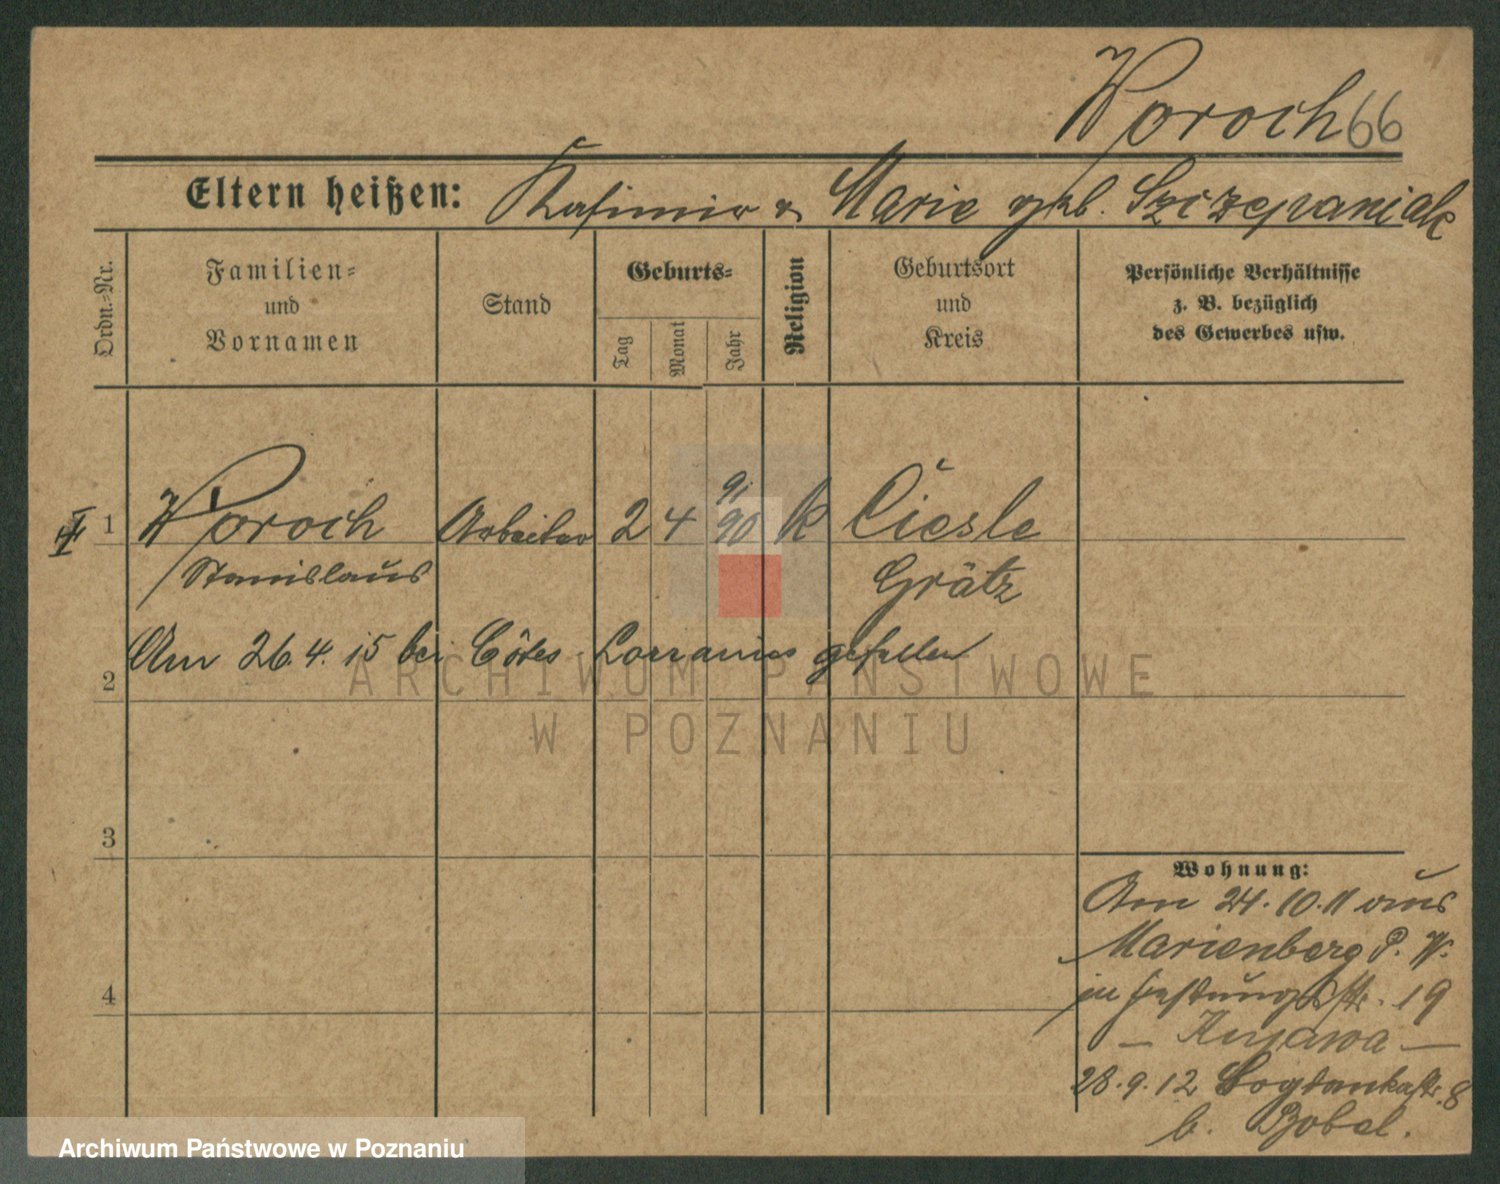 Woroch 66
Eltern heißen: Kasimir u Marie geb. Szczepaniak
Ordn.=Nr.
Familien=
und
Vornamen
Stand
Geburts=
Tag
Monat
Jahr
Religion
Geburtsort
und
Kreis
Persönliche Verhältnisse
z. B. bezüglich
des Gewerbes usw.
91
1 Woroch Arbeiter 2 4 90 k Ciesle
Stanislaus Grätz
Am 26.4.15 bei Côtes Lorraines gefallen
2
3
4
Wohnung:
Am 24.10.11 aus
Marienberg P. W.
in Festungsstr. 19
— Kujawa —
28.9.12 Bogdankastr. 8
b. Bobal.
ARCHIWUM PAŃSTWOWE
W POZNANIU
Archiwum Państwowe w Poznaniu